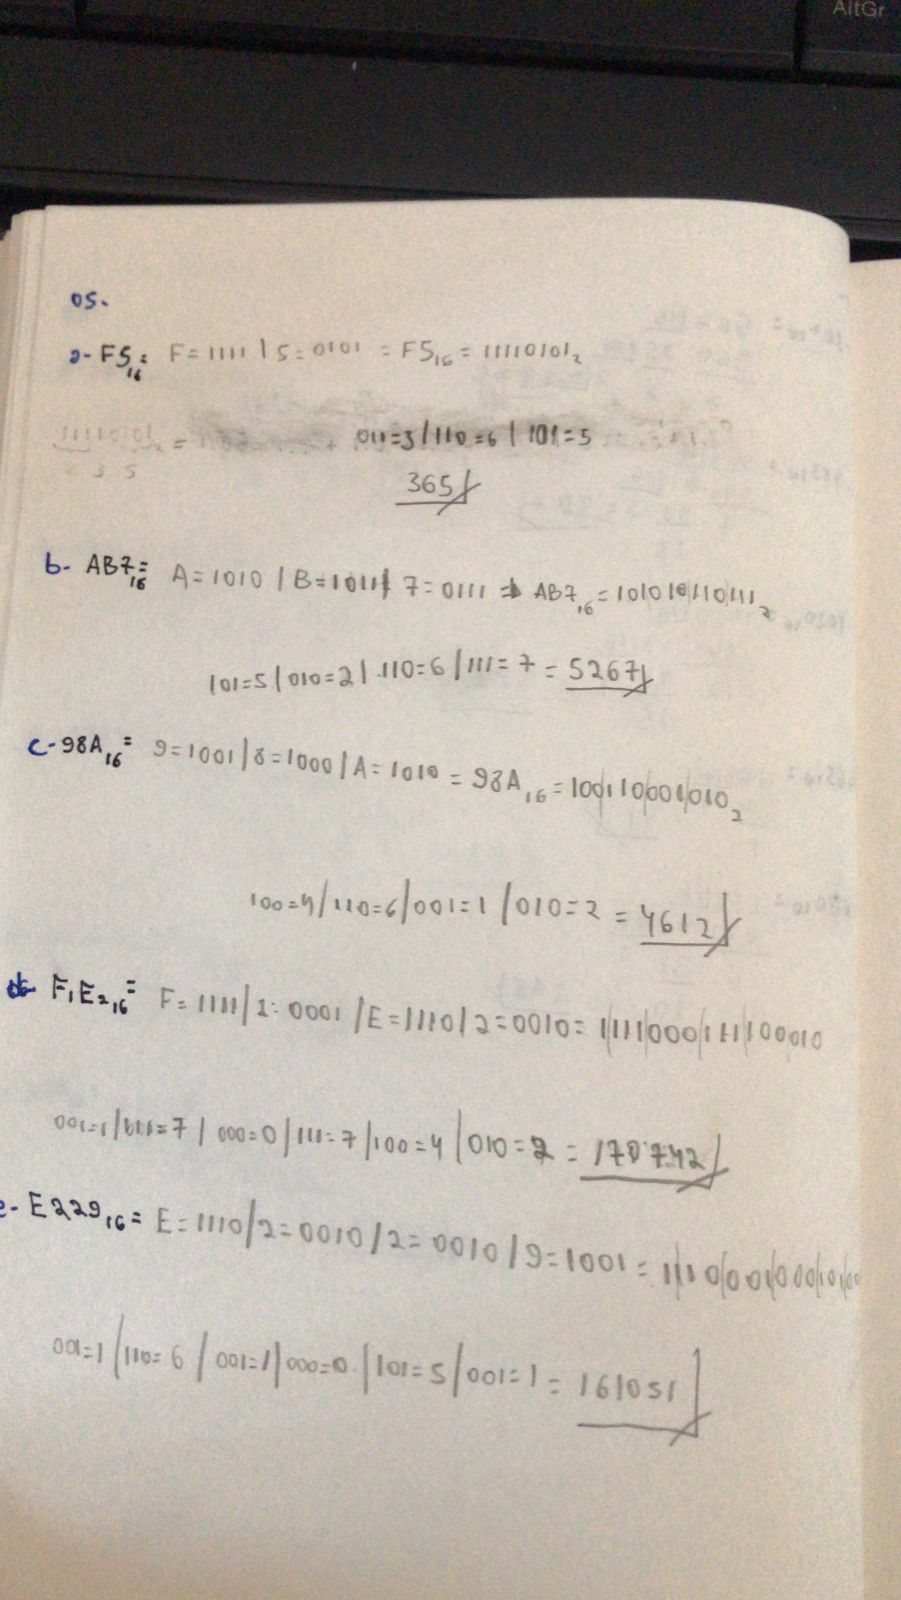 AltGr
05.
a- F5₁₆= F=1111 | 5=0101 = F5₁₆ = 11110101₂
11110101 =
2 3 5
011=3 / 110=6 | 101=5
365
b- AB7₁₆= A=1010 / B=1011 / 7=0111 → AB7₁₆ = 101010110111₂
101=5 / 010=2 / 110=6 / 111=7 = 5267
c- 98A₁₆= 9=1001 / 8=1000 / A=1010 = 98A₁₆ = 100110001010₂
100=4 / 110=6 / 001=1 / 010=2 = 4612
F1E2₁₆= F=1111 / 1=0001 / E=1110 / 2=0010 = 1111000111100010
001=1 / 111=7 / 000=0 / 111=7 / 100=4 / 010=2 = 170742
e- E229₁₆= E=1110 / 2=0010 / 2=0010 / 9=1001 =
001=1 / 110=6 / 001=1 / 000=0 / 101=5 / 001=1 = 161051